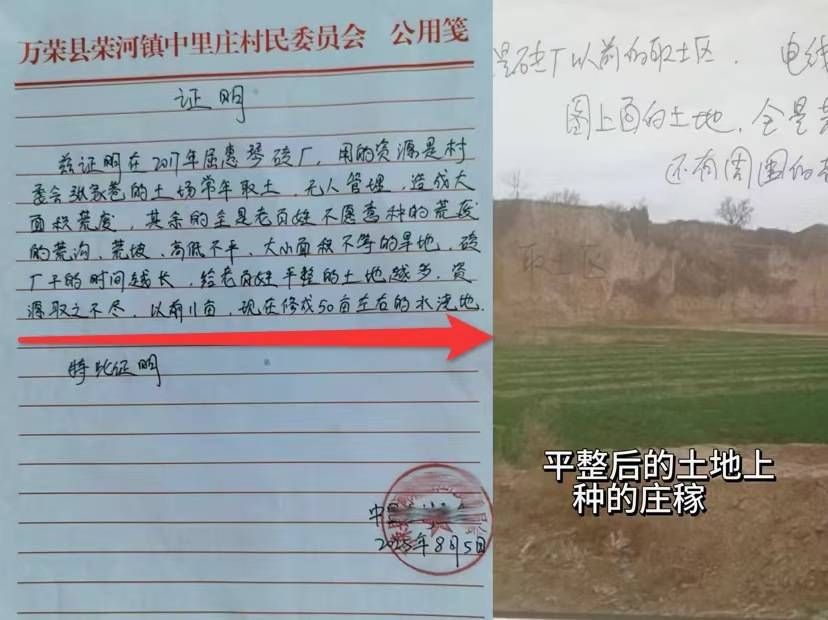 万荣县荣河镇中里庄村民委员会 公用笺
证明
兹证明在2017年屈惠琴砖厂，用的资源是村
委会张家巷的土场常年取土，无人管理，造成大
面积荒废，其余的全是老百姓不愿意种的荒废
的荒沟、荒坡、高低不平、大小面积不等的旱地，砖
厂干的时间越长，给老百姓平整的土地越多，资
源取之不尽，以前11亩，现在修成50亩左右的水浇地.
特此证明
2025年8月5日
是砖厂以前的取土区. 电线
图上面的土地，全是
还有周围的
取土区
平整后的土地上
种的庄稼